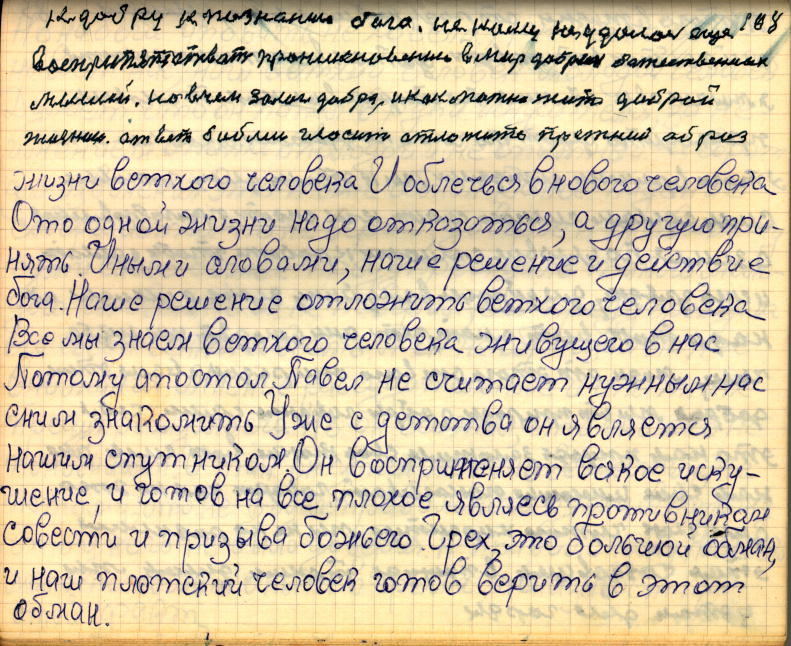 к добру к познанию бога. не кому не удалос еще 108
Воспрепятствоват проникновению в мир добрых божественных
мыслей. но в чем закон добра, и как можно жить доброй
жизнью. ответ библии гласит отложить прежний образ
жизни ветхого человека И облечься в нового человека
Ото одной жизни надо отказаться, а другую при-
нять. Иными словами, наше решение и действие
бога. Наше решение отложить ветхого человека
Все мы знаем ветхого человека живущего в нас
Потому апостол Павел не считает нужным нас
сним знакомить Уже с детства он является
нашим спутником. Он восприменяет всякое иску-
шение, и готов на все плохое являесь противником
совести и призыва божьего. Грех, это большой обман,
и наш плотский человек готов верить в этот
обман.